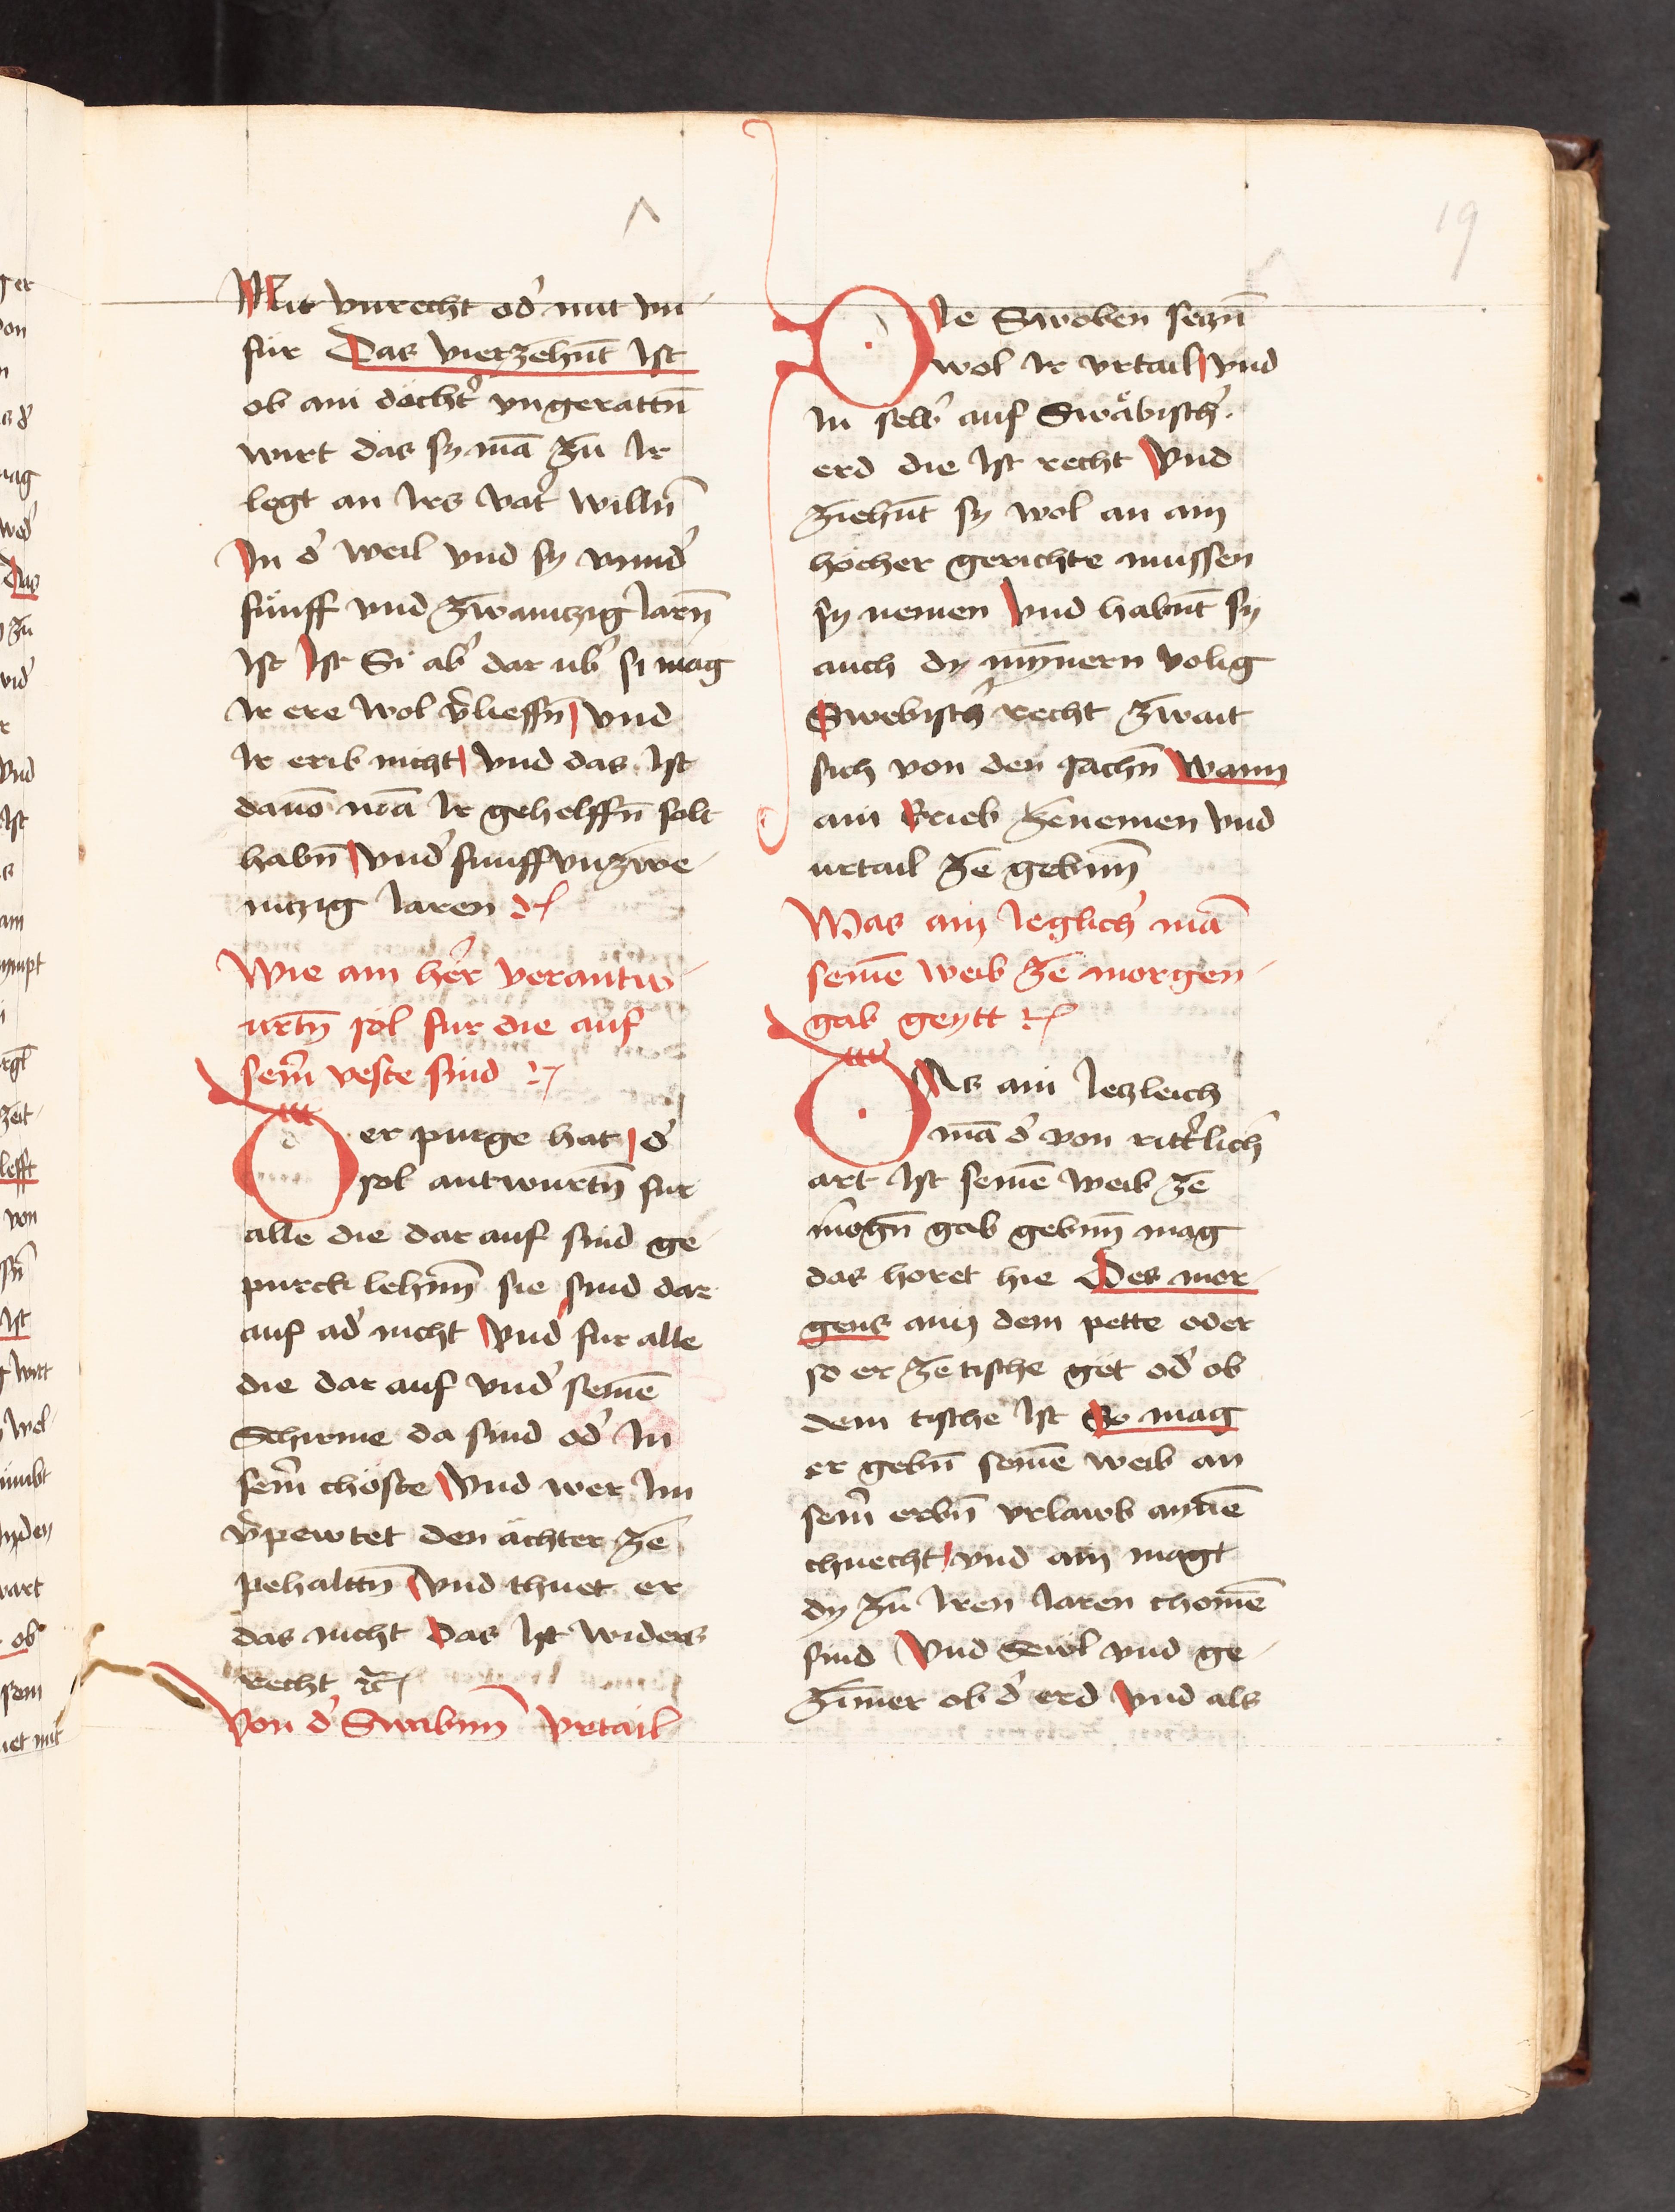 19
Mit vnrecht od' mit vn
fur Das vierzehnt Ist
ob ain dochtˀ vngerattn̄
wirt das sy mā zu Ir
legt an Irs vatˀ willn̄
In d' weil vnd sy vnnd'
fünff vnd zwaintzig Iarn̄
Ist Ist Si ab' dar ub' si mag
Ir ere wol v'lieſſn̄ vnd
Ir erib nicht vnd das Ist
dauō wā Ir gehelffn̄ solt
habn̄ vnd' funffvnzwe
intzig Iaren
Wie ain her verantw
urtn̄ sol fur die auf
sein̄ veste sind
der purge hat d'
sol antwurtn̄ fur
alle die dar auf sind ge
purck lehnn̄ sie sind dar
auf ad' nicht Vnd fur alle
die dar auf vnd' seinē
Schirme da sind od' In
sein̄ choste Vnd wer Im
v'pewtet den achter ze
pehalttn̄ Vnd thuet er
das nicht Das Ist widers
recht ꝛc
Von d' Swabnn̄ Vrtail
DIe Swoben seczn̄
wol Ir vrtail vnd
In selb' auf Swäbisch'
erd die Ist recht Vnd
ziehnt sy wol an ain
hocher gerichte mussen
sy nemen Vnd habnt sy
auch dy mynnern volig
Swebisch' recht zwait
sich von den sachn̄ Wann
ain Erieb zenemen vnd
urtail ze gebnn̄
Was ain Ieglich' mā
seinē weib ze morgen
gab geytt
WAs ain Iezleich
mā d' von ritt'lich'
art Ist seinē weib ze
morgn̄ gab gebnn̄ mag
das horet hie Des mor
gens ann dem pette oder
so er ze tische get od' ob
dem tische Ist So mag
er gebn̄ seinē weib an
sein̄ erbn̄ vrlawb aynnē
chnecht vnd ain magt
dy zu Iren Iaren chomē
sind Vnd Sewl vnd ge
zimer ob d' erd Vnd als